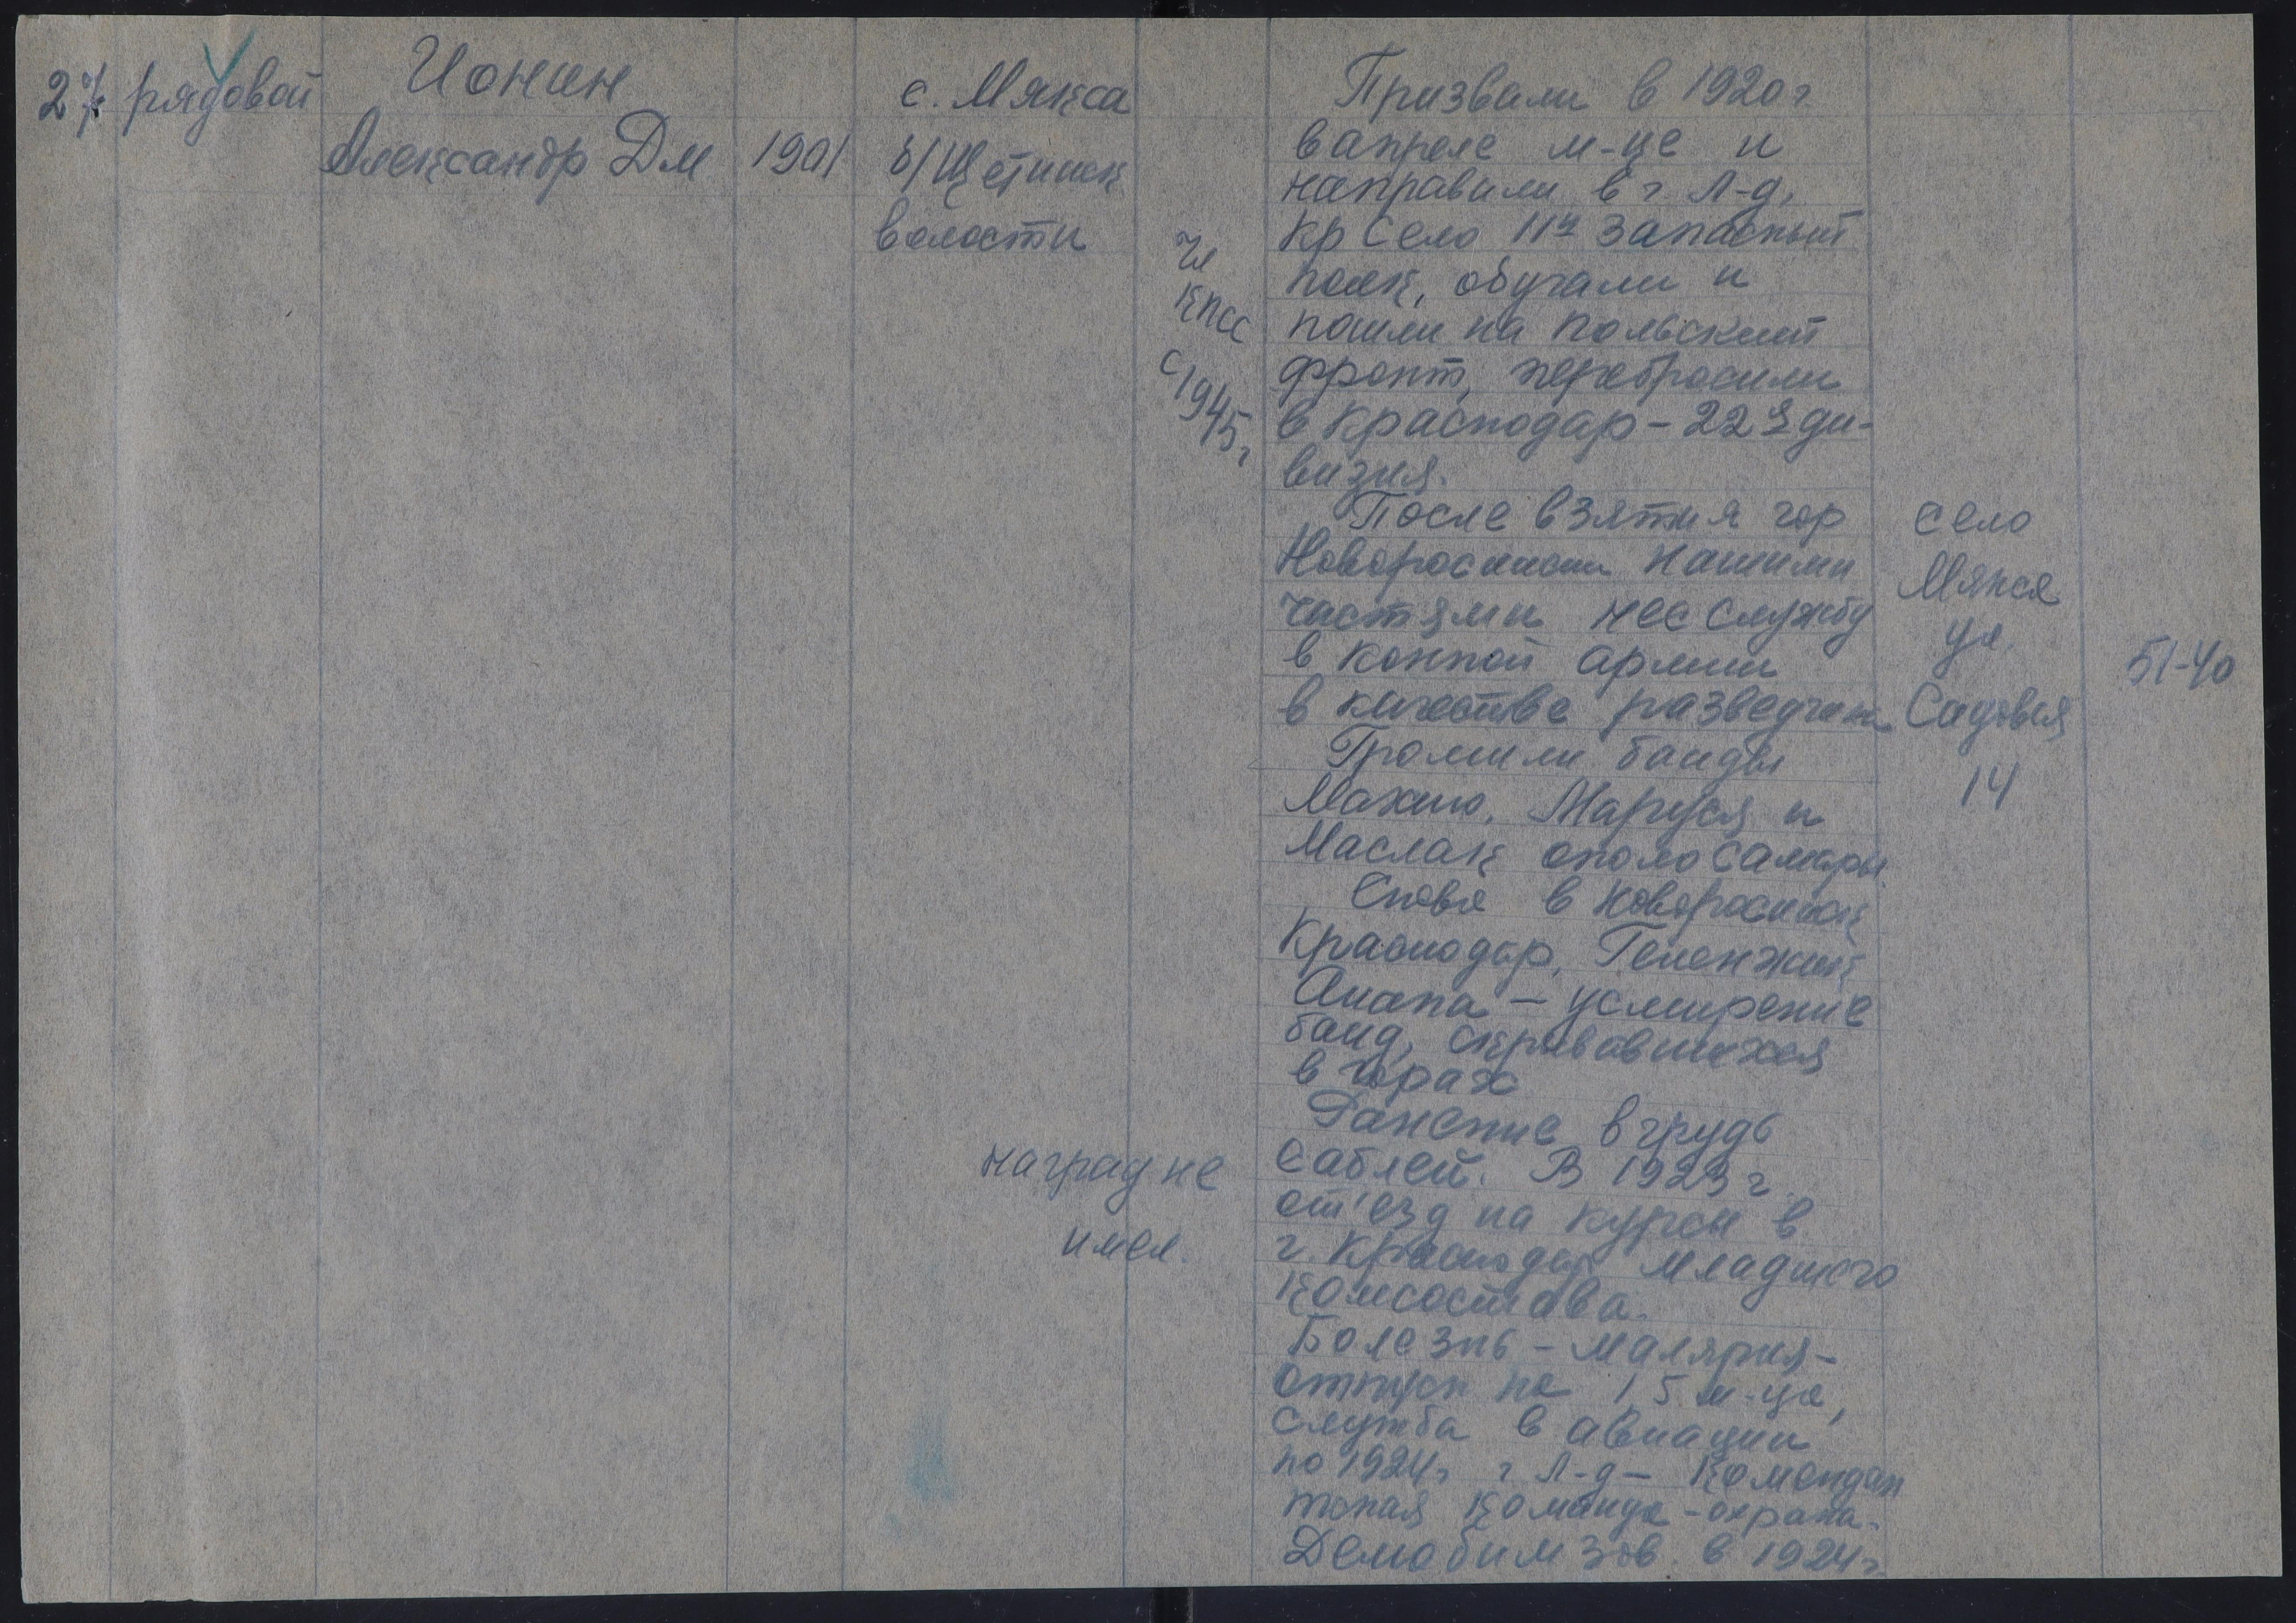 27 рядовой
Ионин
Александр Дм
1901
с. Мякса
б/Щетинск
волости
Чл
КПСС
с 1945 г
наград не
имел.
Призвали в 1920 г
в апреле м-це и
направили в г Л-д,
Кр Село 11й запасный
полк, обучали и
пошли на польский
фронт, перебросили
в Краснодар - 22 я ди-
визия.
После взятия гор
Новоросийска нашими
частями нес службу
в конной армии
в качестве разведчика
Громили банды
Махно, Маруся и
Маслак около Самары.
Снова в Новоросийск
Краснодар, Геленжик
Анапа - усмирение
банд, скрывавшихся
в горах
Ранение в грудь
саблей. В 1923 г.
от'езд на курсы в
г. Краснодар младшего
комсостава.
Болезнь - малярия -
отпуск на 1,5 м-ца,
служба в авиации
по 1924г г Л-д - Комендан
тская команда - охрана.
Демобилизов. в 1924г
село
Мякса
ул.
Садовая
14
51-40